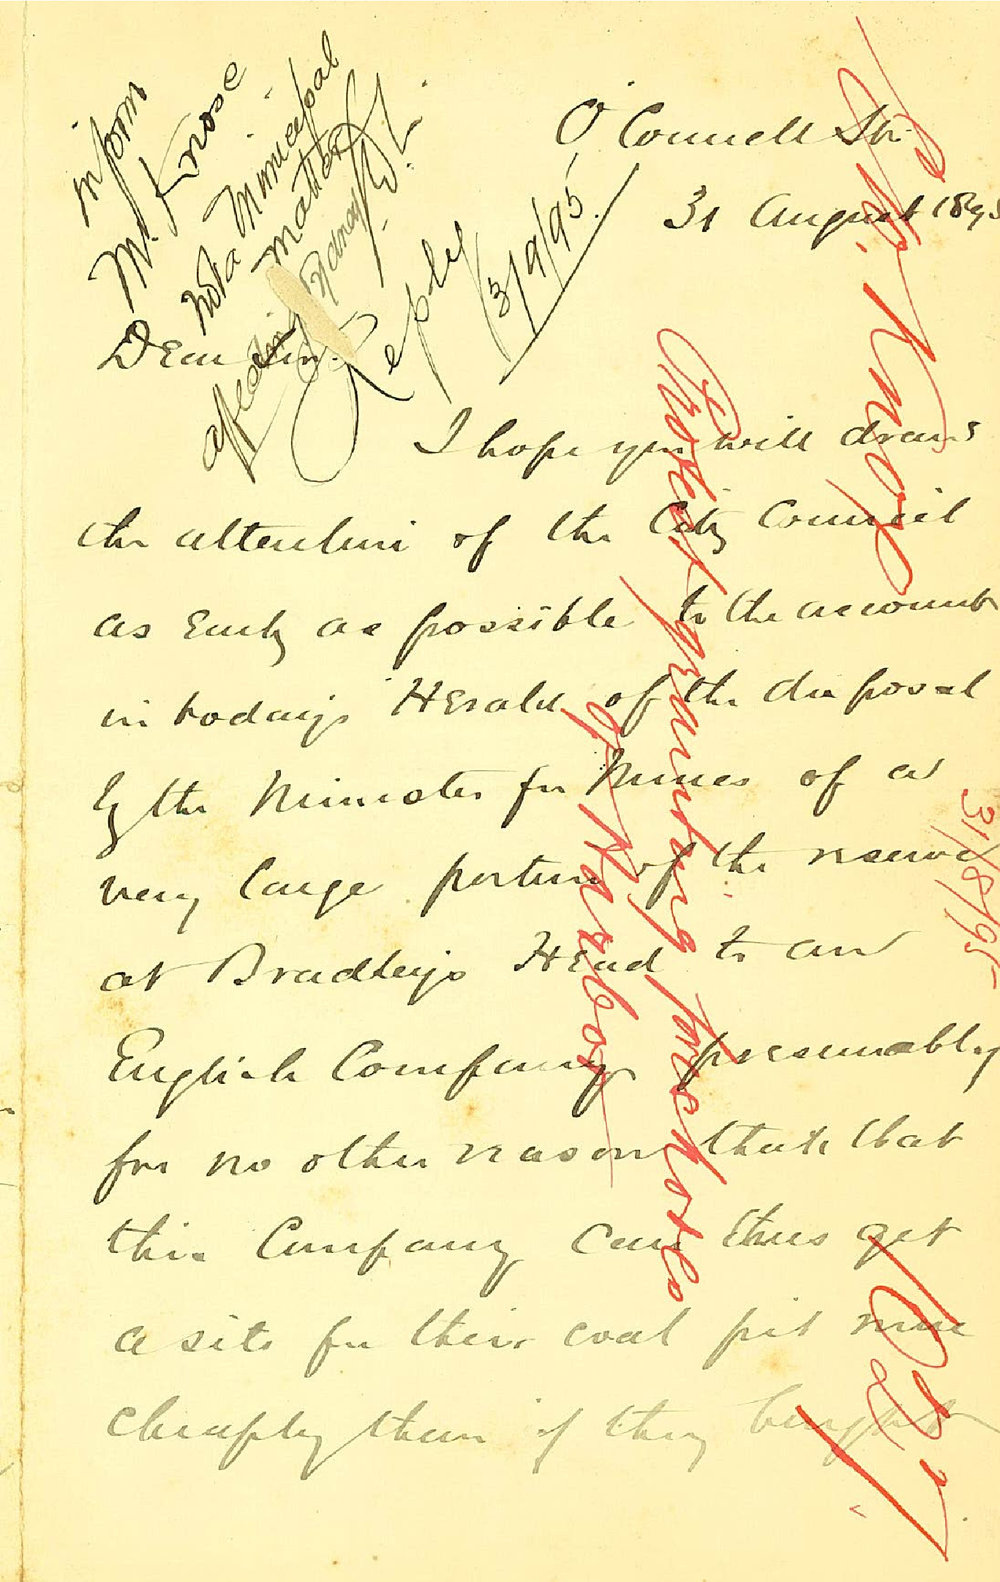 O'Connell St.
31 August 1895
inform
Mr. Knose
not a Municipal
matter
affecting Sydney
Reply
3/9/95
Dear Sir.
I hope you will draw
the attention of the City Council
as early as possible to the account
in today's Herald of the disposal
by the Minister for Mines of a
very large portion of the reserve
at Bradley's Head to an
English Company presumably
for no other reason than that
this Company can thus get
a site for their coal pit more
cheaply than if they bought
Knox
Protest granting foreshores
of Harbor
31/8/95